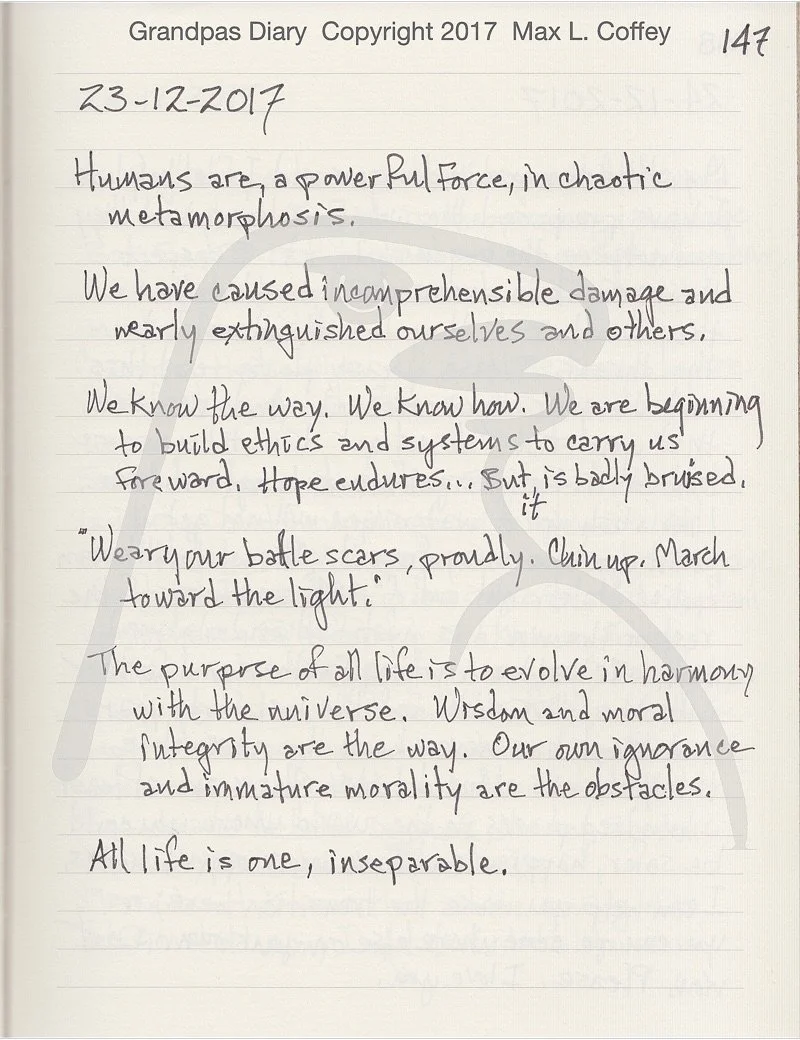 Grandpas Diary Copyright 2017 Max L. Coffey
147
23-12-2017
Humans are, a powerful force, in chaotic
metamorphosis.
We have caused incomprehensible damage and
nearly extinguished ourselves and others.
We know the way. We know how. We are beginning
to build ethics and systems to carry us
foreward. Hope endures... But, is badly bruised.
it
"Wear your battle scars, proudly. Chin up. March
toward the light."
The purpose of all life is to evolve in harmony
with the universe. Wisdom and moral
integrity are the way. Our own ignorance
and immature morality are the obstacles.
All life is one, inseparable.